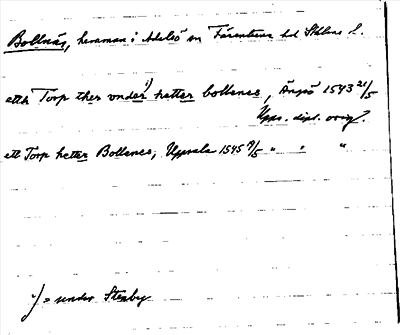 Bollnäs, hemman i Adelsö sn Färentuna hd Sthlms l.
ett Torp ther vnder¹⁾ hetter bollenes, Ängsö 1543 21/5
Upps. dipl. orig.
ett Torp hetter Bollenes, Uppsala 1545 9/5 " " "
¹⁾ = under Stenby